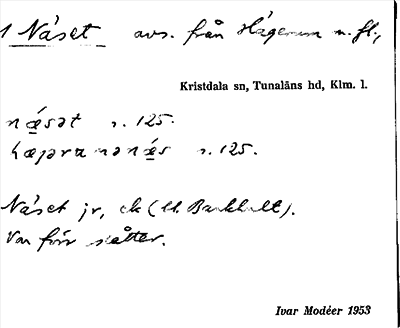 1 Näset avs. från Hägerum m. fl.,
Kristdala sn, Tunaläns hd, Klm. l.
nǽ̱sət s. 125.
nǽ̱s s. 125.
Näset jr, ck (t. Bankhult).
Var förr slåtter.
Ivar Modéer 1953